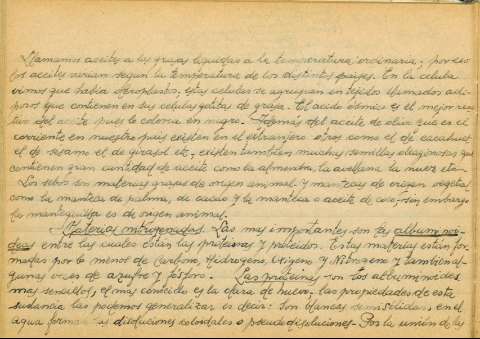 Llamamos aceites a las grasas liquidas a la temperatura ordinaria, por eso
los aceites varian segun la temperatura de los distintos paises. En la celula
vimos que habia oleoplastos, estas celulas se agrupan en tejidos llamados adi-
posos que contienen en sus celulas gotitas de grasa. El acido osmico es el mejor reac-
tivo del aceite pues lo colorea en negro. Además del aceite de oliva que es el
corriente en nuestro pais existen en el extranjero otros como el de cacahuet
el de sesamo el de girasol etc, existen tambien muchas semillas oleaginosas que
contienen gran cantidad de aceite como la almendra, la avellana la nuez etc.
Los sebos son materias grasas de origen animal. y mantecas de origen vegetal
como la manteca de palma, de cacao y la manteca o aceite de coco, sin embargo
la mantequilla es de origen animal.
Material nitrogenados. Las mas importantes son las albumnoi-
deas entre las cuales estan las proteinas y proteidos. Estas materias están for-
madas por lo menos de Carbono, Hidrogeno, Oxigeno y Nitrogeno y tambien al-
gunas veces de azufre y fosforo. Las proteinas son los albuminoides
mas sencillos, el mas conocido es la clara de huevo. las propiedades de esta
sustancia las podemos generalizar es decir: Son blancas semisólidas, en el
agua forman las disoluciones coloidales o pseudodisoluciones. Por la union de las